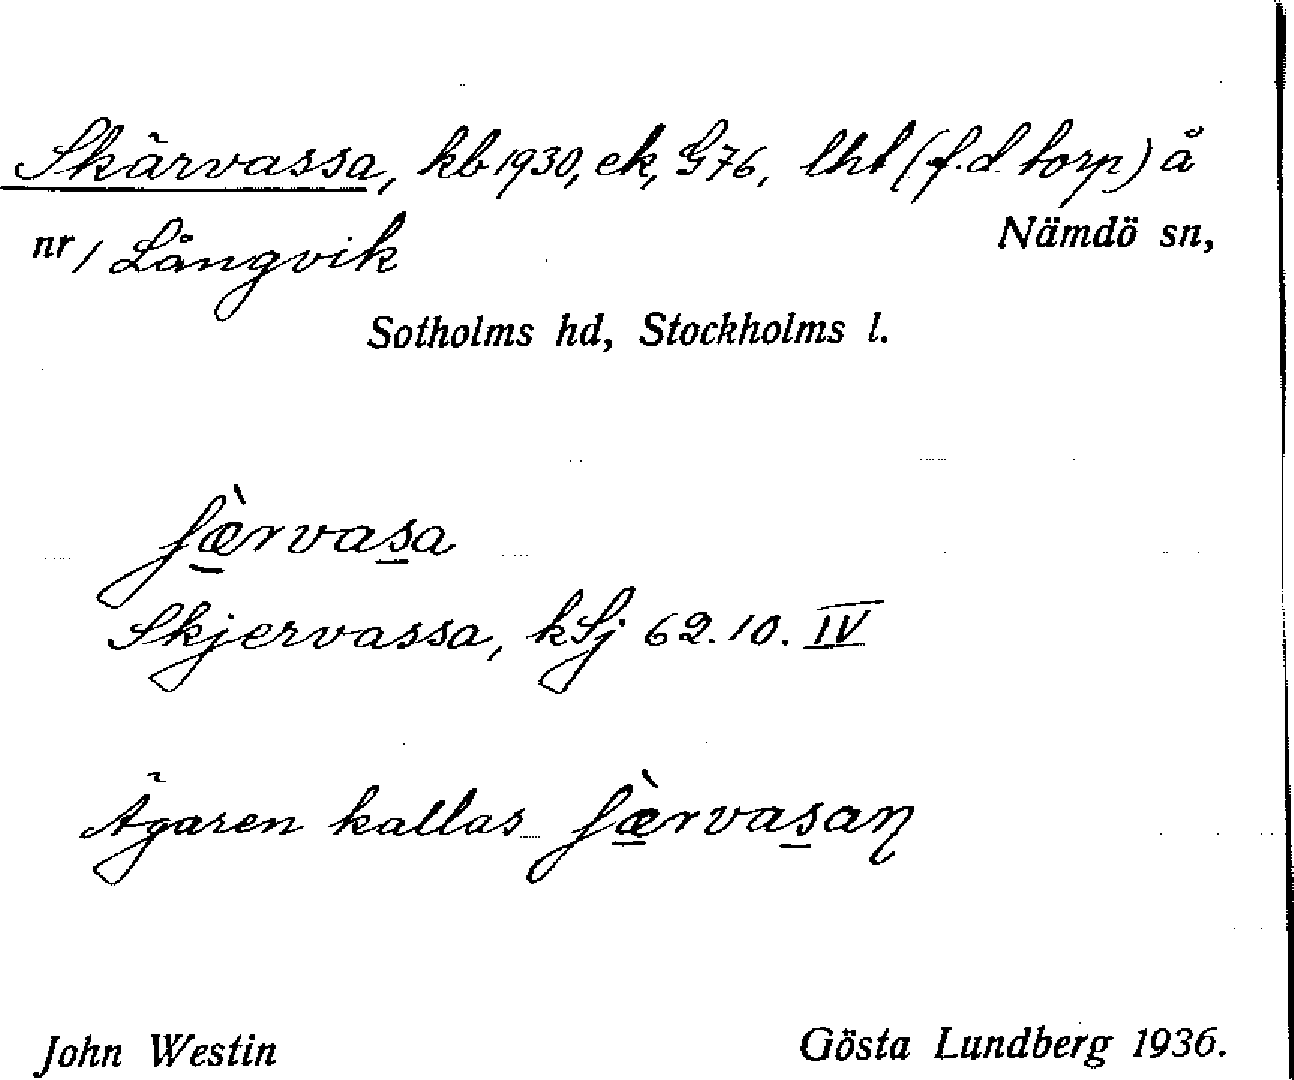 Skärvassa, kb 1930, ek, G76, lht (f.d. torp) å
nr 1 Långvik Nämdö sn,
Sotholms hd, Stockholms l.
ʃæ̀rvasa
Skjervassa, kSj 62.10. IV
Ägaren kallas ʃæ̀rvasaɳ
John Westin Gösta Lundberg 1936.